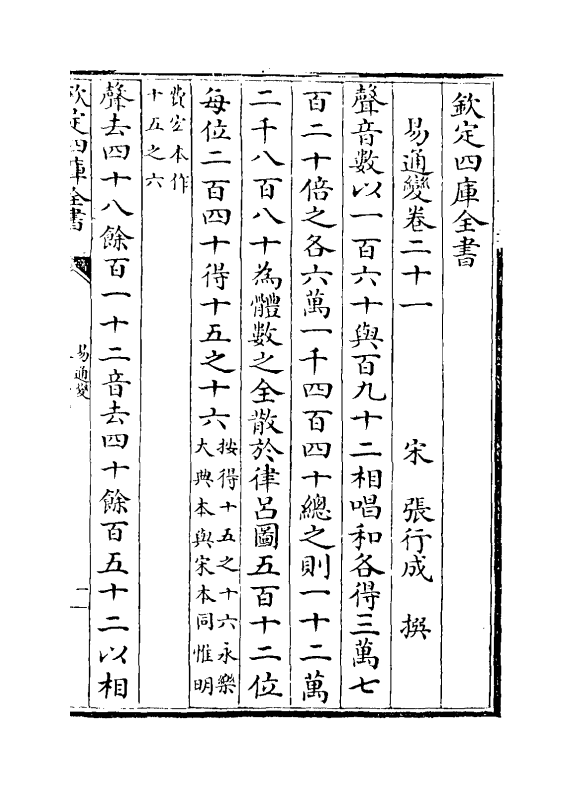 欽定四庫全書
易通變卷二十一
宋 張行成 撰
聲音數以一百六十與百九十二相唱和各得三萬七
百二十倍之各六萬一千四百四十總之則一十二萬
二千八百八十為體數之全散於律呂圖五百十二位
每位二百四十得十五之十六
按得十五之十六永樂
大典本與宋本同惟明
費宏本作
十五之六
聲去四十八餘百一十二音去四十餘百五十二以相
欽定四庫全書
易通變